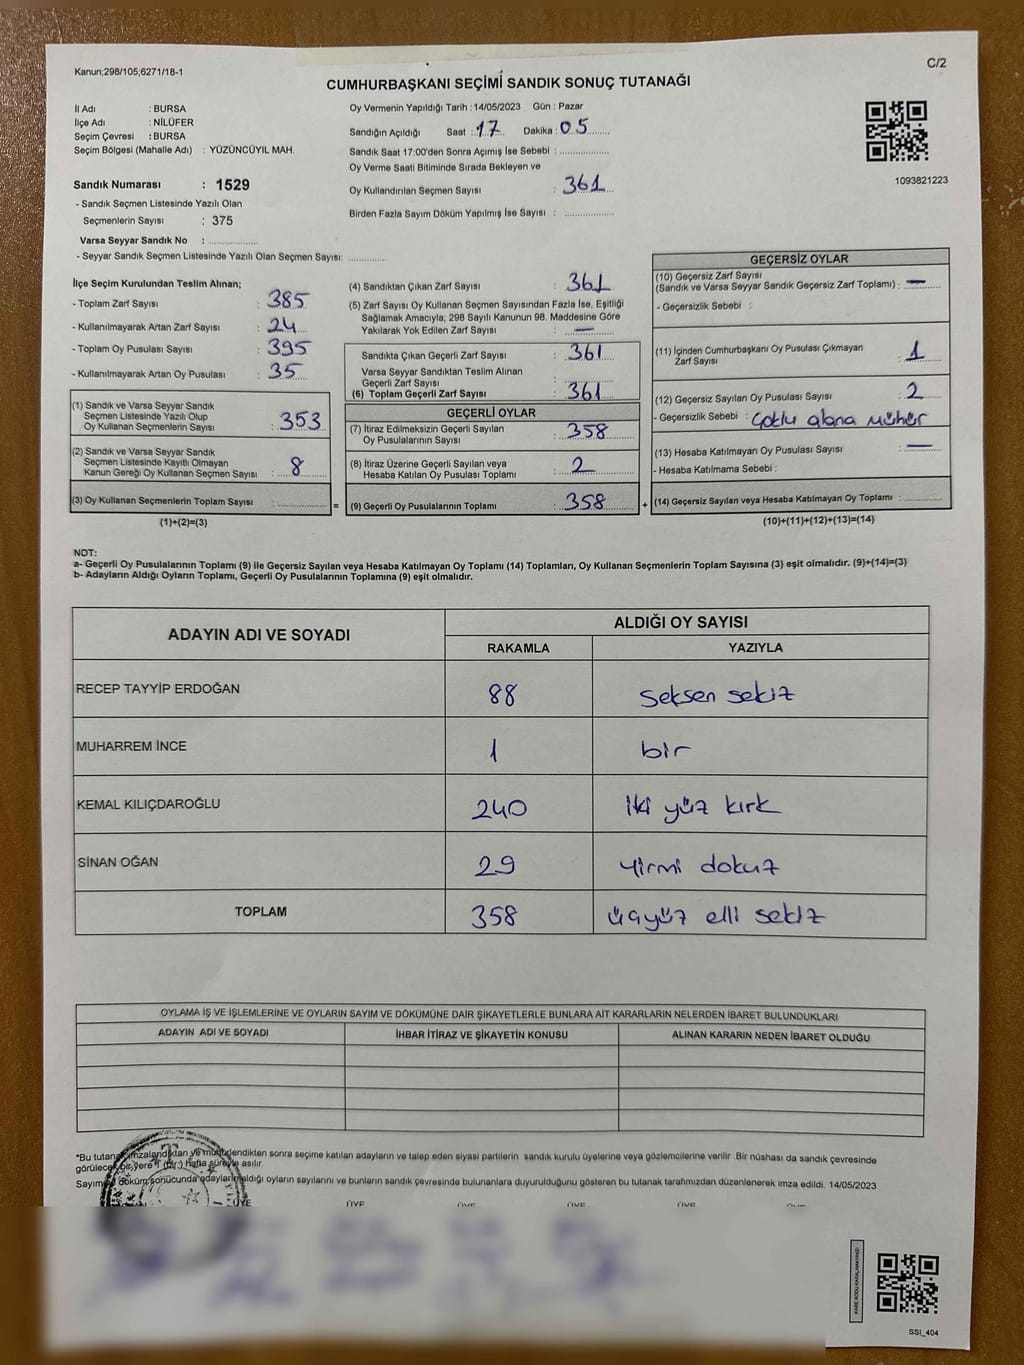 Kanun;298/105;6271/18-1
C/2
CUMHURBAŞKANI SEÇİMİ SANDIK SONUÇ TUTANAĞI
İl Adı : BURSA
İlçe Adı : NİLÜFER
Seçim Çevresi : BURSA
Seçim Bölgesi (Mahalle Adı) : YÜZÜNCÜYIL MAH.
Sandık Numarası : 1529
- Sandık Seçmen Listesinde Yazılı Olan
Seçmenlerin Sayısı : 375
Varsa Seyyar Sandık No : ..................
- Seyyar Sandık Seçmen Listesinde Yazılı Olan Seçmen Sayısı: .............
Oy Vermenin Yapıldığı Tarih : 14/05/2023 Gün : Pazar
Sandığın Açıldığı Saat : 17 Dakika : 05
Sandık Saat 17:00'den Sonra Açımış İse Sebebi : ..................
Oy Verme Saati Bitiminde Sırada Bekleyen ve
Oy Kullandırılan Seçmen Sayısı : 361
Birden Fazla Sayım Döküm Yapılmış İse Sayısı : ..................
1093821223
İlçe Seçim Kurulundan Teslim Alınan;
- Toplam Zarf Sayısı : 385
- Kullanılmayarak Artan Zarf Sayısı : 24
- Toplam Oy Pusulası Sayısı : 395
- Kullanılmayarak Artan Oy Pusulası : 35
(1) Sandık ve Varsa Seyyar Sandık
Seçmen Listesinde Yazılı Olup
Oy Kullanan Seçmenlerin Sayısı : 353
(2) Sandık ve Varsa Seyyar Sandık
Seçmen Listesinde Kayıtlı Olmayan
Kanun Gereği Oy Kullanan Seçmen Sayısı : 8
(3) Oy Kullanan Seçmenlerin Toplam Sayısı : ..................
(1)+(2)=(3)
(4) Sandıktan Çıkan Zarf Sayısı : 361
(5) Zarf Sayısı Oy Kullanan Seçmen Sayısından Fazla İse, Eşitliği
Sağlamak Amacıyla; 298 Sayılı Kanunun 98. Maddesine Göre
Yakılarak Yok Edilen Zarf Sayısı : —
Sandıkta Çıkan Geçerli Zarf Sayısı : 361
Varsa Seyyar Sandıktan Teslim Alınan
Geçerli Zarf Sayısı
(6) Toplam Geçerli Zarf Sayısı : 361
GEÇERLİ OYLAR
(7) İtiraz Edilmeksizin Geçerli Sayılan
Oy Pusulalarının Sayısı : 358
(8) İtiraz Üzerine Geçerli Sayılan veya
Hesaba Katılan Oy Pusulası Toplamı : 2
= (9) Geçerli Oy Pusulalarının Toplamı : 358 +
GEÇERSİZ OYLAR
(10) Geçersiz Zarf Sayısı
(Sandık ve Varsa Seyyar Sandık Geçersiz Zarf Toplamı) : —
- Geçersizlik Sebebi :
(11) İçinden Cumhurbaşkanı Oy Pusulası Çıkmayan
Zarf Sayısı : 1
(12) Geçersiz Sayılan Oy Pusulası Sayısı : 2
- Geçersizlik Sebebi : Çoklu alana mühür
(13) Hesaba Katılmayan Oy Pusulası Sayısı : —
- Hesaba Katılmama Sebebi :
(14) Geçersiz Sayılan veya Hesaba Katılmayan Oy Toplamı : .............
(10)+(11)+(12)+(13)=(14)
NOT:
a- Geçerli Oy Pusulalarının Toplamı (9) ile Geçersiz Sayılan veya Hesaba Katılmayan Oy Toplamı (14) Toplamları, Oy Kullanan Seçmenlerin Toplam Sayısına (3) eşit olmalıdır. (9)+(14)=(3)
b- Adayların Aldığı Oyların Toplamı, Geçerli Oy Pusulalarının Toplamına (9) eşit olmalıdır.
ADAYIN ADI VE SOYADI ALDIĞI OY SAYISI
RAKAMLA YAZIYLA
RECEP TAYYİP ERDOĞAN 88 seksen sekiz
MUHARREM İNCE 1 bir
KEMAL KILIÇDAROĞLU 240 iki yüz kırk
SİNAN OĞAN 29 yirmi dokuz
TOPLAM 358 üçyüz elli sekiz
OYLAMA İŞ VE İŞLEMLERİNE VE OYLARIN SAYIM VE DÖKÜMÜNE DAİR ŞİKAYETLERLE BUNLARA AİT KARARLARIN NELERDEN İBARET BULUNDUKLARI
ADAYIN ADI VE SOYADI İHBAR İTİRAZ VE ŞİKAYETİN KONUSU ALINAN KARARIN NEDEN İBARET OLDUĞU
*Bu tutanak imzalandıktan ve mühürlendikten sonra seçime katılan adayların ve talep eden siyasi partilerin sandık kurulu üyelerine veya gözlemcilerine verilir. Bir nüshası da sandık çevresinde
görülecek bir yere 1 (bir) hafta süreyle asılır.
Sayım ve döküm sonucunda adayların aldığı oyların sayılarını ve bunların sandık çevresinde bulunanlara duyurulduğunu gösteren bu tutanak tarafımızdan düzenlenerek imza edildi. 14/05/2023
ÜYE ÜYE ÜYE ÜYE ÜYE
KARE KODU KARALAMAYINIZ!
SSI_404